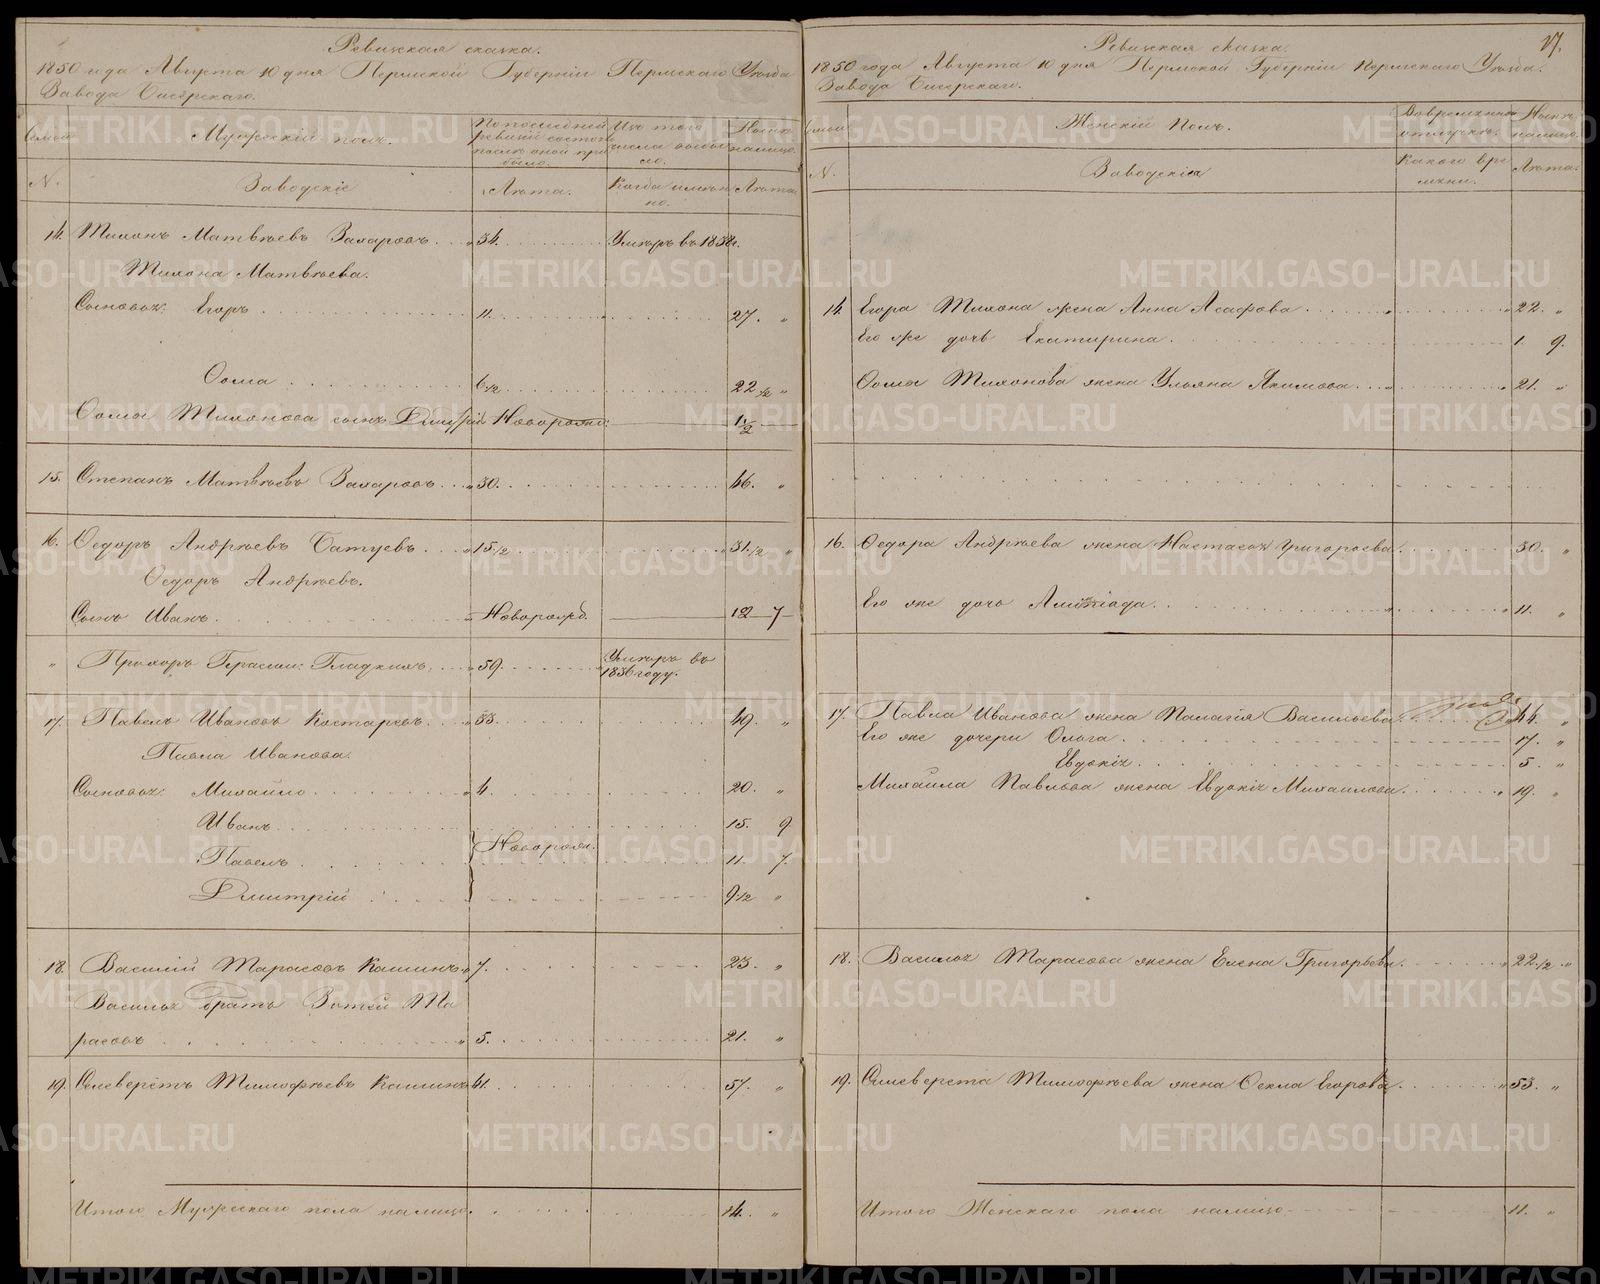 Ревизская сказка.
1850 года Августа 10 дня Пермской Губерніи Пермскаго Уѣзда
Завода Бисерскаго.
Семьи
Мужескій полъ.
По последней ревизіи состояло и после оной прибыло.
Изъ того числа выбыло.
Нынѣ налицо.
N.
Заводскіе
Лѣта.
Когда именно.
Лѣта
14. Тихонъ Матвѣевъ Захаровъ 34. Умеръ въ 1838 г.
Тихона Матвѣева.
Сыновья: Егоръ 11. 27. "
Ѳома 6 1/2 22 1/2 "
Ѳомы Тихонова сынъ Дмитрій Новорожд: 1 1/2
15. Степанъ Матвѣевъ Захаровъ 30. 46. "
16. Ѳедоръ Андрѣевъ Батуевъ 15 1/2 31 1/2 "
Ѳедоръ Андрѣевъ.
Сынъ Иванъ. Новорожд. 12 7
" Прохоръ Герасим: Гладкихъ 59. Умеръ въ 1836 году.
17. Павелъ Ивановъ Костаревъ 33. 49. "
Павла Иванова.
Сыновья: Михайло 4. 20. "
Иванъ 15. 9
Павелъ Новорож. 11. 7.
Дмитрій 9 1/2 "
18. Василій Тарасовъ Кашинъ 7. 23. "
Василья братъ Зотей Та
расовъ 5. 21. "
19. Селеверстъ Тимофѣевъ Кашинъ 41. 57. "
Итого Мужескаго пола налицо 14. "
17.
Ревизская сказка.
1850 года Августа 10 дня Пермской Губерніи Пермскаго Уѣзда.
Завода Бисерскаго.
Семьи
Женскій Полъ.
Во временной отлучкѣ.
Нынѣ налицо.
N.
Заводскія
Какого времени.
Лѣта.
14. Егора Тихона жена Анна Асафова 22. "
Его же дочь Екатирина 1 9.
Ѳомы Тихонова жена Ульяна Якимова 21. "
16. Ѳедора Андрѣева жена Настасья Григорьева 30. "
Его же дочь 11. "
17. Павла Иванова жена Палагія Васильева 44. "
Его же дочери Ольга 17. "
Евдокія 5. "
Михайла Павлова жена Евдокія Михайлова 19. "
18. Василья Тарасова жена Елена Григорьева 22 1/2 "
19. Селеверста Тимофѣева жена Ѳекла Егорова 53. "
Итого Женскаго пола налицо 11. "
METRIKI.GASO-URAL.RU